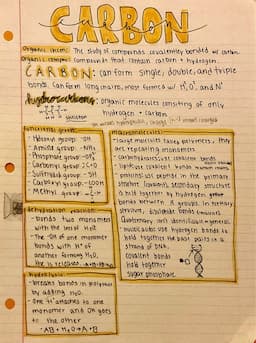 CARBON
organic chem: The study of compounds covalently bonded w/ carbon
organic compound: compounds that contain carbon + hydrogen.
CARBON: can form single, double, and triple
bonds. Can form long chains, most formed w/ H, O, and N
hydrocarbons: organic molecules consisting of only
hydrogen + carbon
functional groups
- Hydroxyl group -OH
- Amino group -NH₂
- Phosphate group
- Carbonyl group C=O
- Sulfhydryl group -SH
- Carboxyl group -COOH
- Methyl group
dehydration reaction
- bonds two monomers
with the loss of H₂O
- The OH of one monomer
bonds with H⁺ of
another forming H₂O,
the is released.
hydrolysis
- breaks bonds in polymer
by adding H₂O.
- One H⁺ attaches to one
monomer and OH goes
to the other
AB + H₂O → A + B
macromolecules
- large molecules called polymers, they
are repeating monomers
- carbohydrates use covalent bonds
- lipids use covalent bonds
- proteins use peptide in the primary
structure
a held together by hydrogen
bonds between R groups. In tertiary
structure, disulfide bonds
Quaternary isn't identifiable in general.
- nucleic acids use hydrogen bonds to
hold together the base pairs in a
strand of DNA,
covalent bonds
hold together
sugar phosphate.